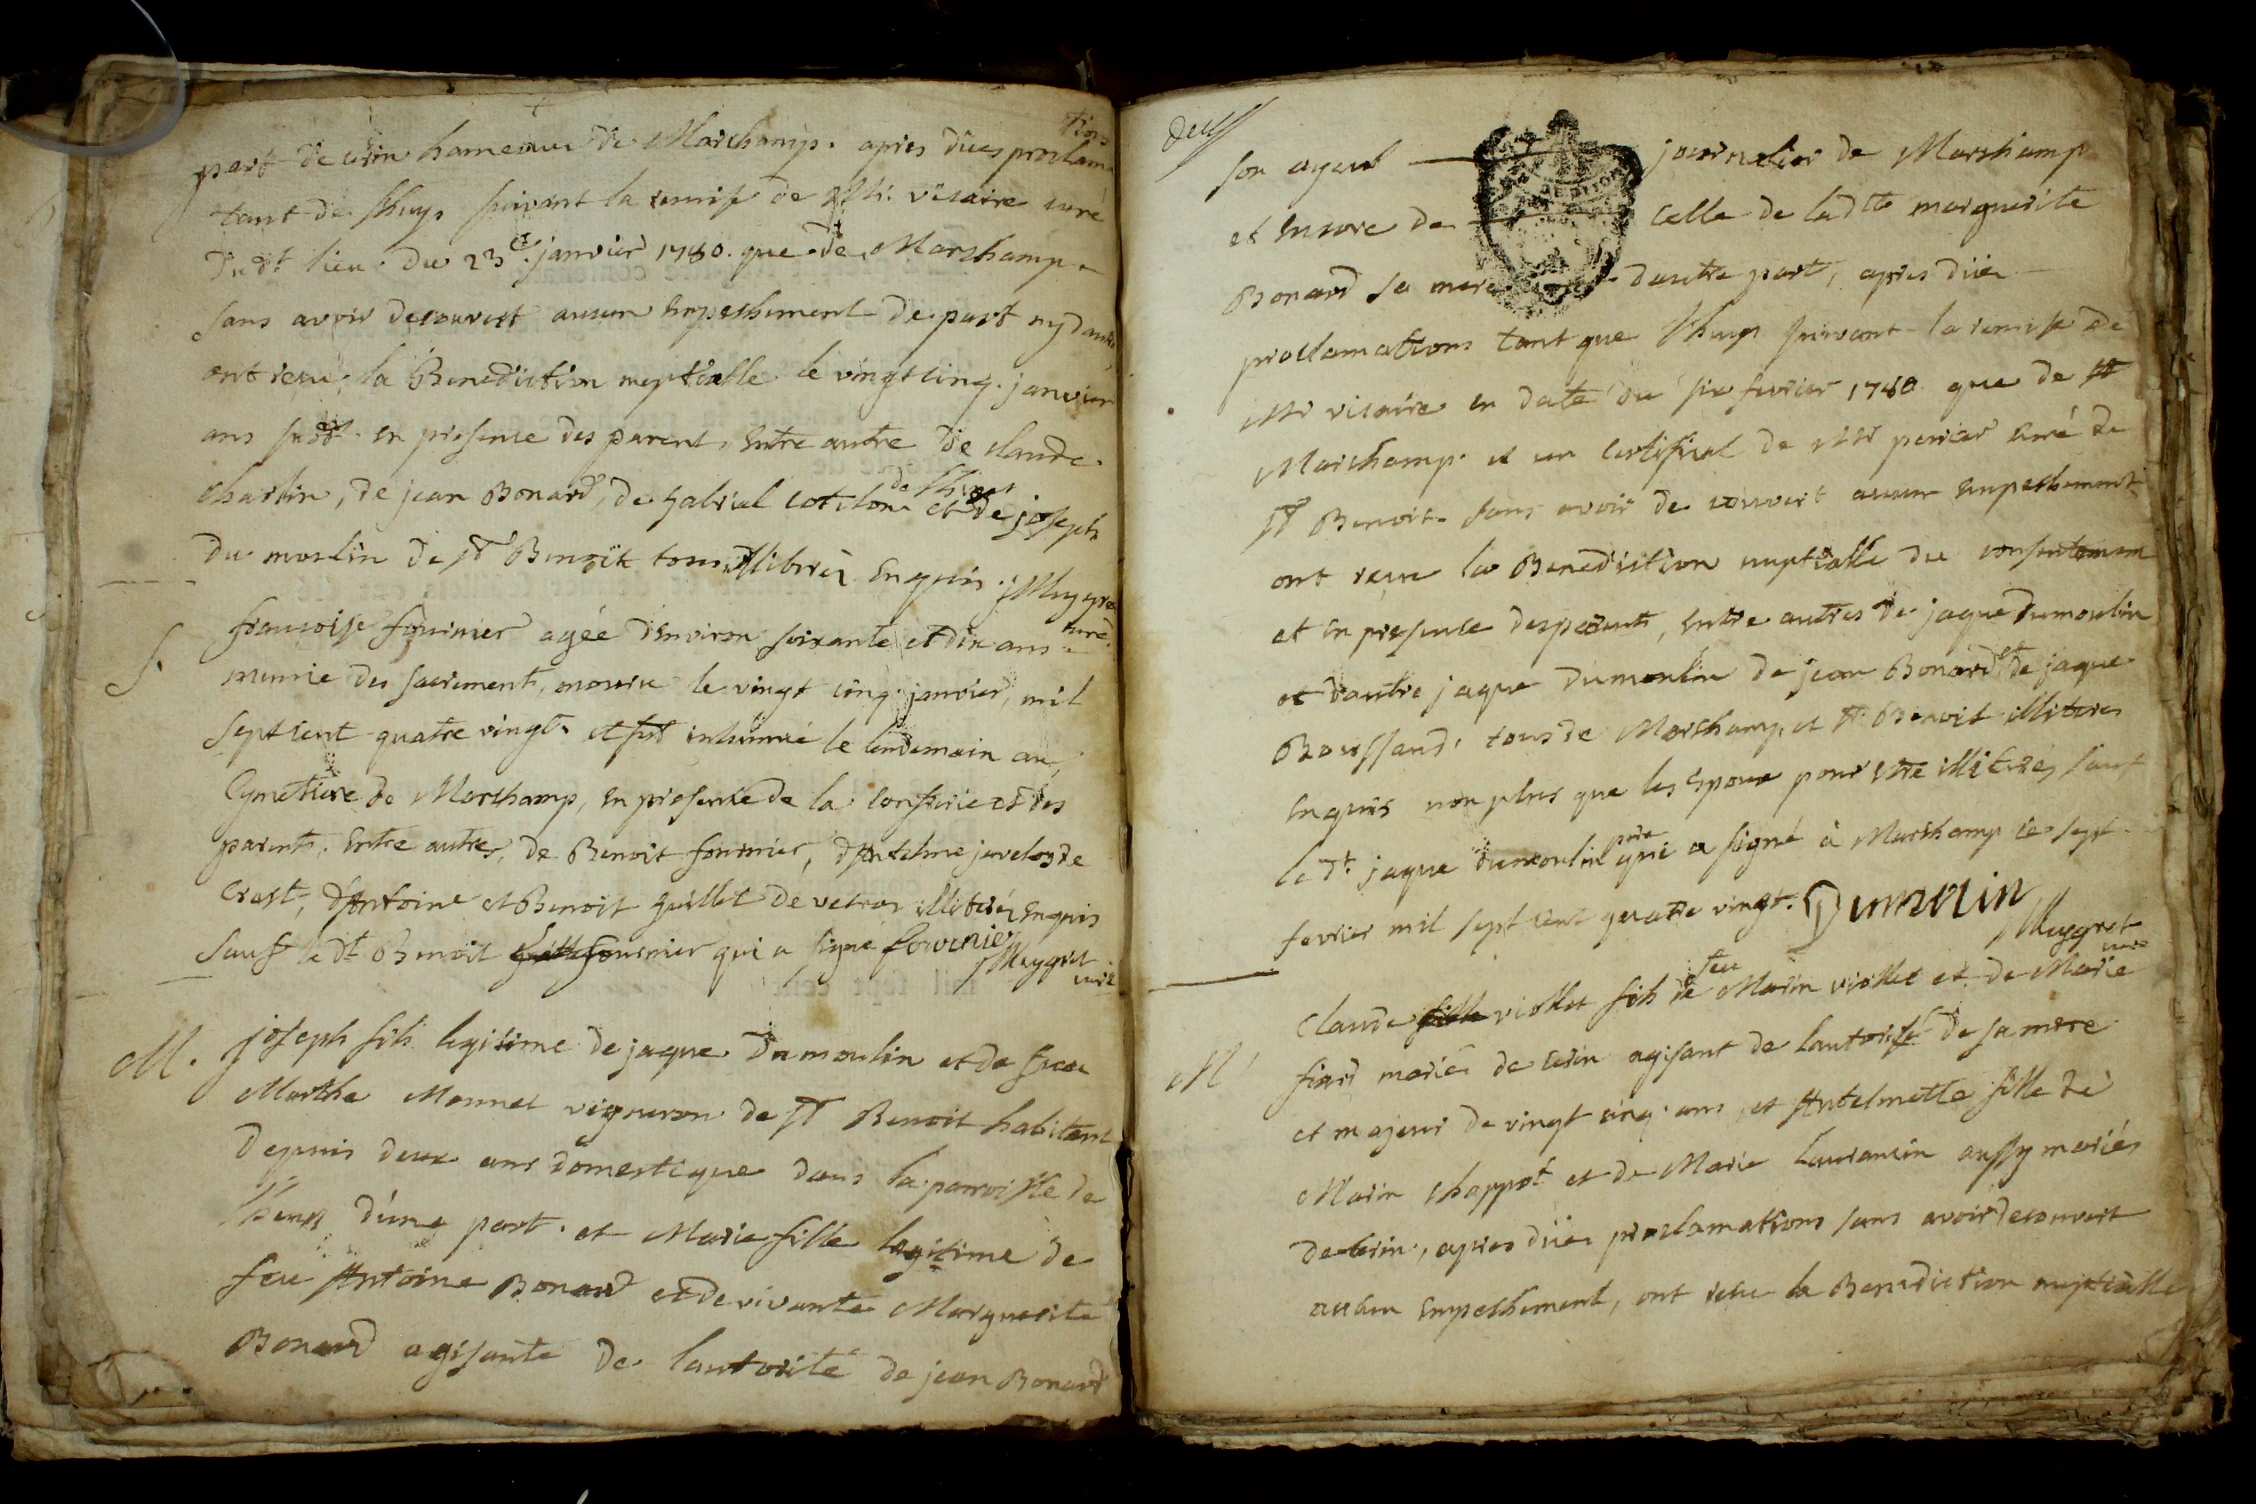 part de cerin hameau de Marchamp. apres dues proclama
tions
tant de lhuys suivant la remise de Mr. vicaire curé
dudt lieu du 23e. janvier 1780. que de Marchamp
sans avoir decouvert aucun Empechement de part ny dautre
ont reçu la Benediction nuptialle le vingt cinq janvier
ans susdt. en presence des parents Entre autre de claude
charlin, de jean Bonard, de gabriel cotilon de lhuys et de joseph
du moulin de st Benoit tous illiterés Enquis. Muygret
curé
S.
francoise fournier agée d'Environ soixante et dix ans
munie des sacrements, mourru le vingt cinq janvier, mil
sept cent quatre vingt. et fut inhumé le lendemain au
Cymetiere de Marchamp, en presence de la confrerie et des
parents. Entre autres, de Benoit fournier, d'Antelme javelos de
Crest, d'Antoine et Benoit guillet de vetras illiterés Enquis
sauf le dt Benoit fournier qui a signé fournier
Muygret
curé
M.
joseph fils legitime de jaque Dumoulin et de feue
Marthe Monnet vigneron de st Benoit habitant
Depuis deux ans domestique dans la parroisse de
lhuys d'une part. et Marie fille legitime de
feu Antoine Bonard et de vivante Marguerite
Bonard agisante de lautorité de jean Bonard
deux
son ayeul journalier de Marchamp
et Encore de celle de ladtte marguerite
Bonard sa mere dautre part, apres düe
proclamations tant que lhuys suivant la remise de
Mr vicaire en date du six fevrier 1780 que de st
Marchamp. et un certificat de Mr perier curé de
st Benoit. sans avoir de couvert aucun Empechement
ont reçu la Benediction nuptialle du consentemen
et en presence des parents, Entre autres de jaque Dumoulin
et d'autre jaque Dumoulin de jean Bonard et de jaque
Boussand, tous de Marchamp et st. Benoit illiteres
Enquis non plus que les Epoux pour Etre illiterés sauf
le dt. jaque dumoulin pere qui a signé à Marchamp le sept
fevrier mil sept cent quatre vingt. Dumolin
Muygret
curé
M
Claude viollet fils de feu Marin viollet et de Marie
fiard mariés de cerin agisant de lautorité de sa mere
et majeur de vingt cinq ans, et Antelmette fille de
Marin chappot et de Marie Laurancin aussy mariés
de cerin, apres düe proclamations sans avoir decouvert
aucun Empechement, ont reçu la Benediction nuptialle